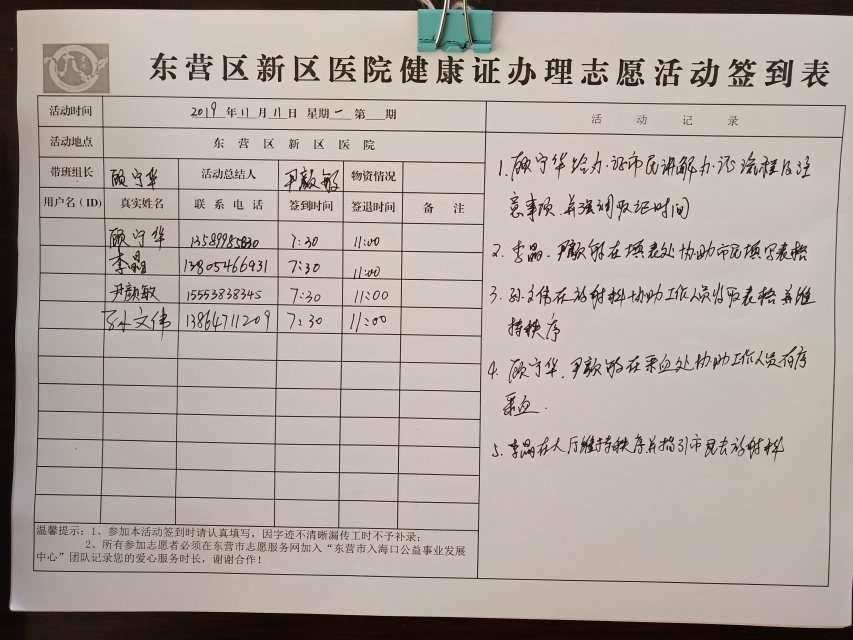 东营区新区医院健康证办理志愿活动签到表
活动时间 2019年11月11日 星期一 第 期
活动记录
活动地点 东营区新区医院
带班组长 顾守华 活动总结人 尹颜敏 物资情况
用户名(ID) 真实姓名 联系电话 签到时间 签退时间 备注
顾守华 13589985830 7:30 11:00
李晶 13805466931 7:30 11:00
尹颜敏 15553838345 7:30 11:00
孙文伟 13864711209 7:30 11:00
1.顾守华给办证市民讲解办证流程及注
意事项,并强调取证时间
2.李晶、尹颜敏在填表处协助市民填写表格
3.孙文伟在放射科协助工作人员收取表格并维
持秩序
4.顾守华、尹颜敏在采血处协助工作人员有序
采血.
5.李晶在大厅维持秩序并指引市民去放射科
温馨提示:1、参加本活动签到时请认真填写,因字迹不清晰漏传工时不予补录;
2、所有参加志愿者必须在东营市志愿服务网加入“东营市入海口公益事业发展
中心”团队记录您的爱心服务时长,谢谢合作!